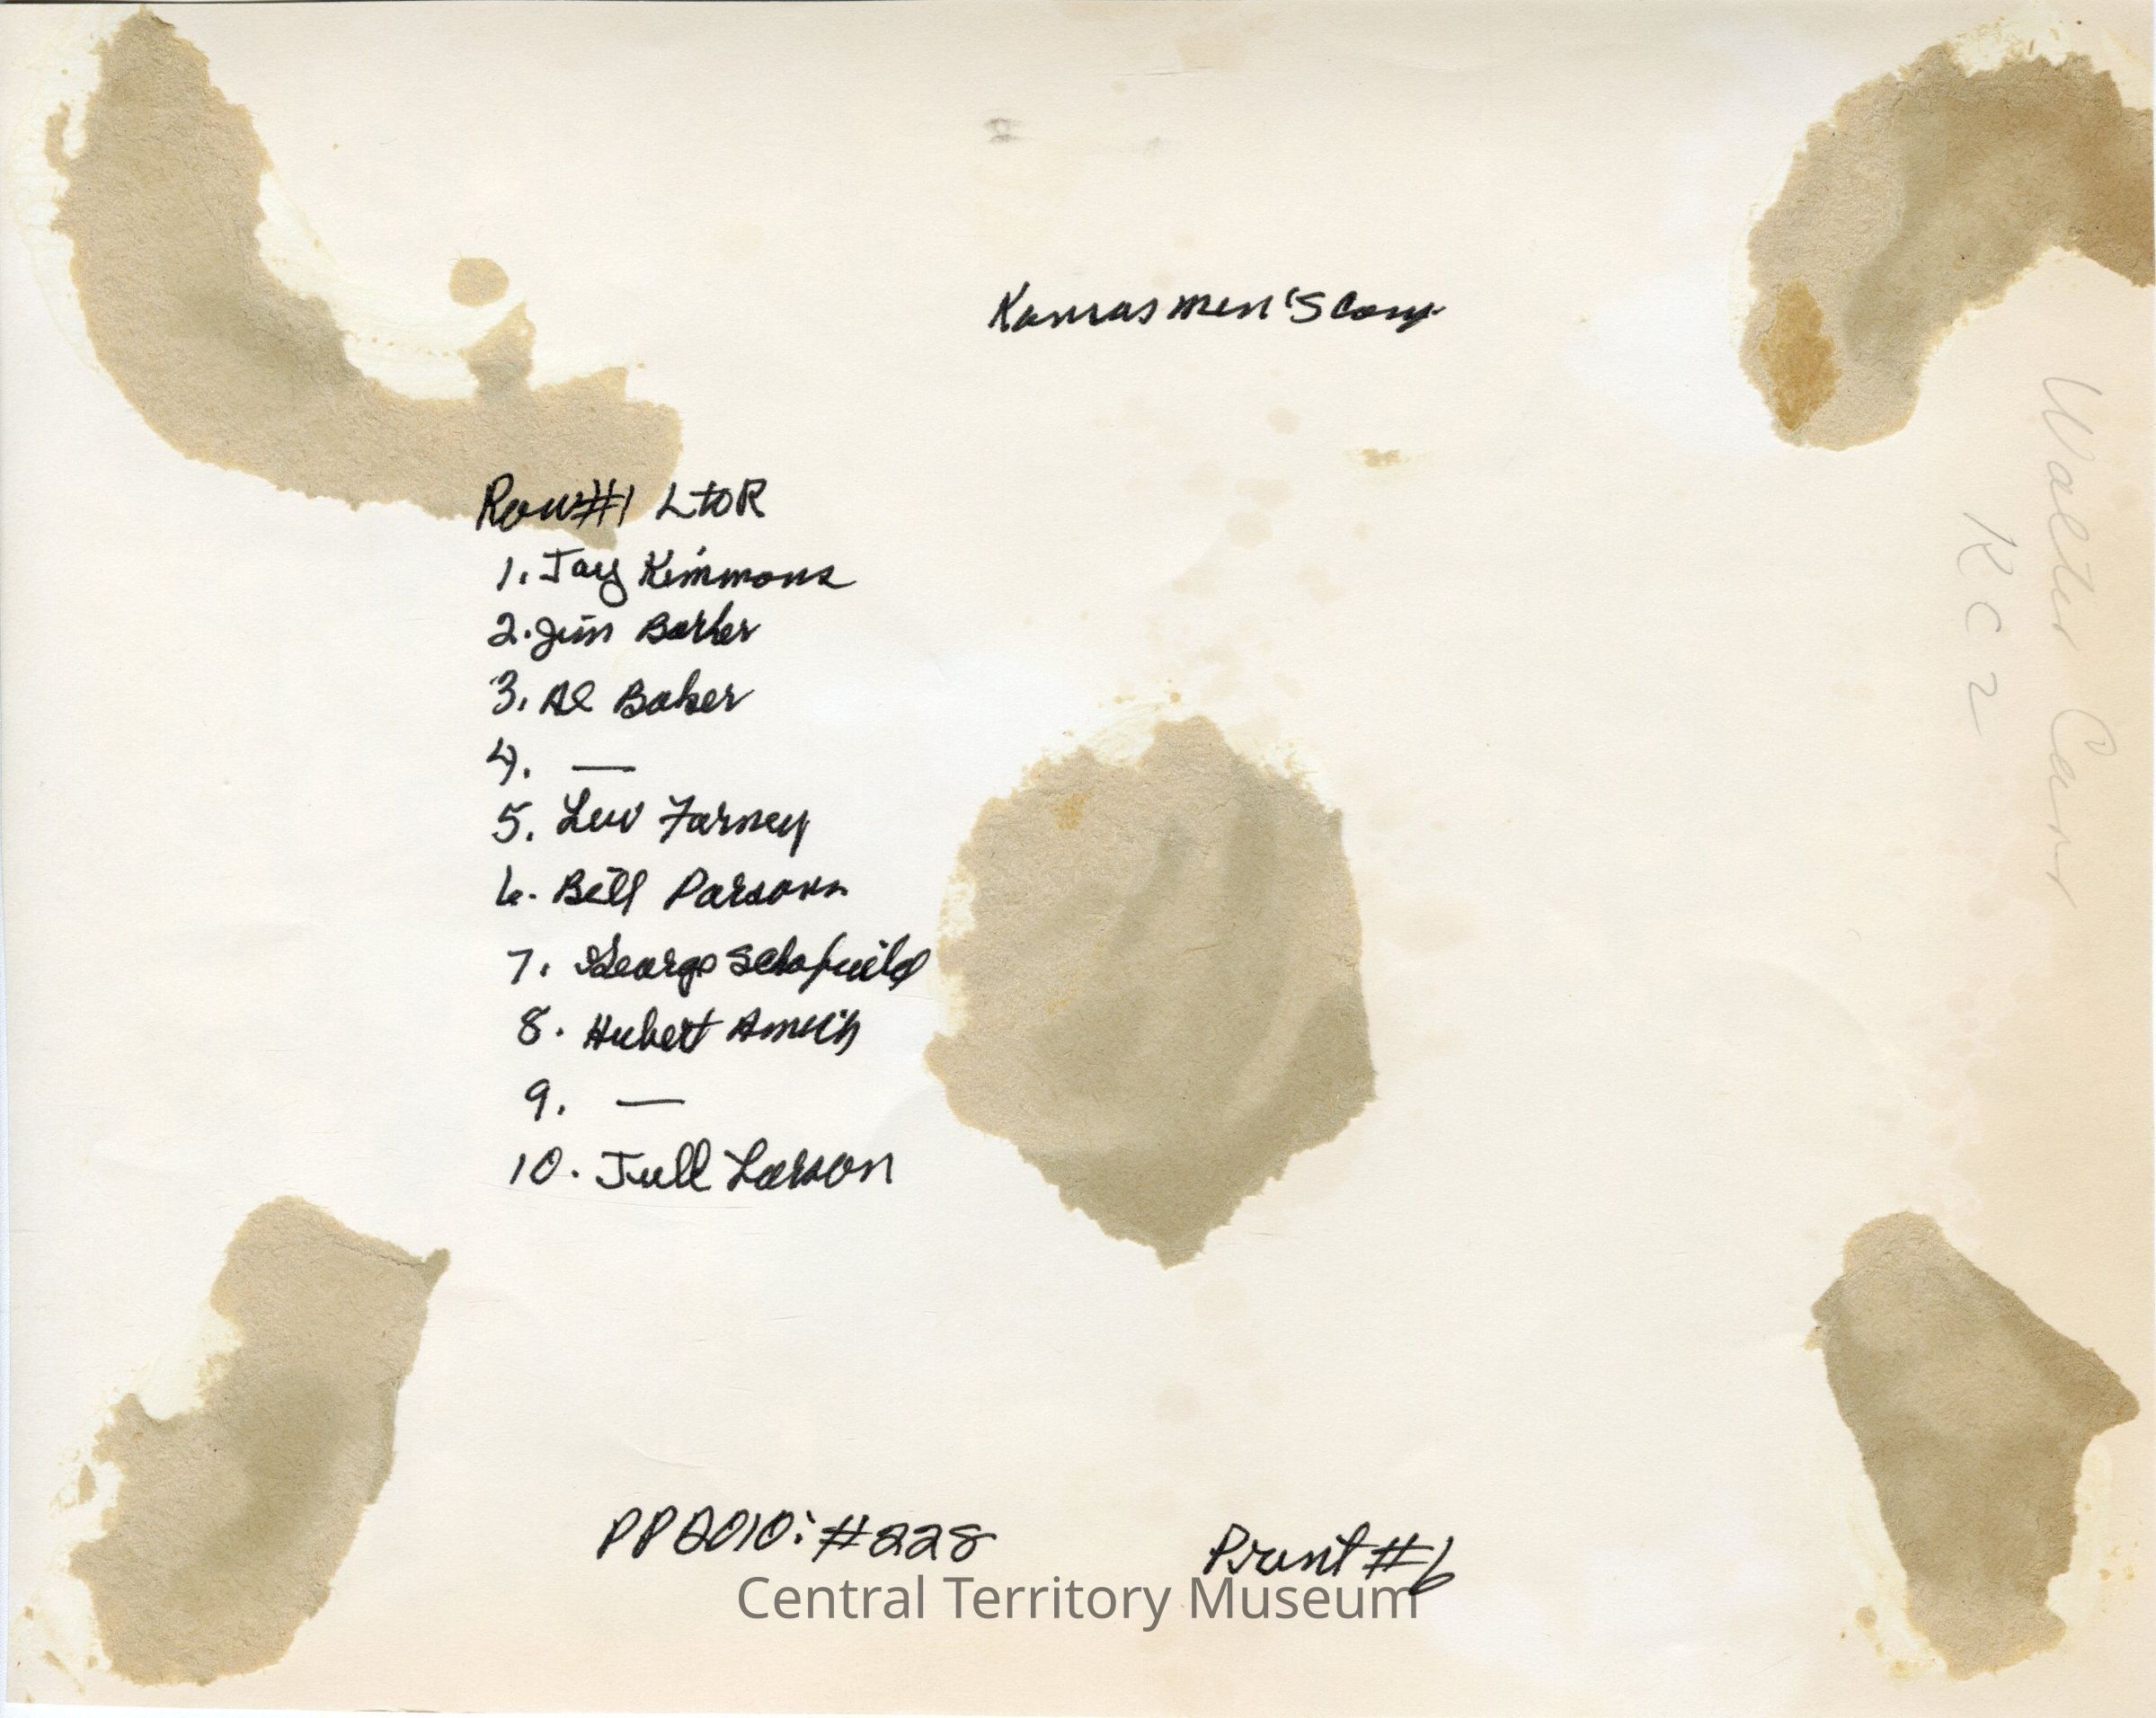 Kansas Men's
Row #1 L to R
1. Jay Kimmons
2. Jim Barker
3. Al Baker
4. —
5. Lew Farney
6. Bill Parsons
7. George Schofield
8. Hubert
9. —
10. Larson
PP2010: #228
Print #6
Central Territory Museum
Walter Carr
K C 2